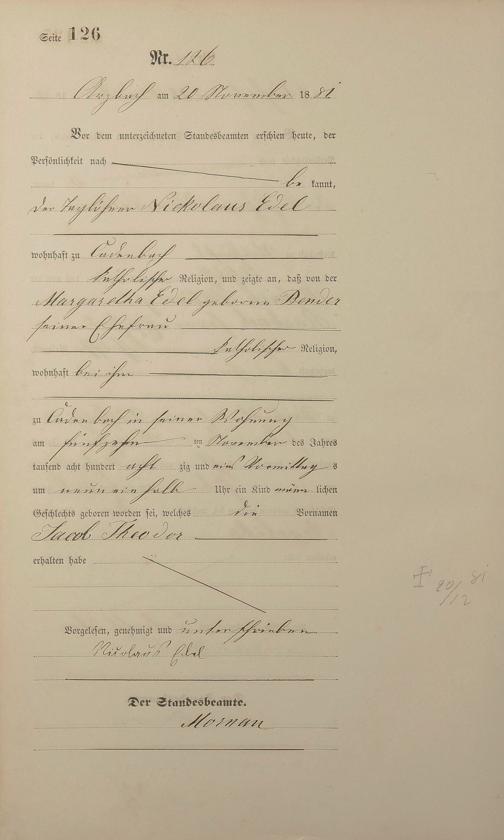 Seite 126
Nr. 126.
Arzbach am 20 November 1881
Vor dem unterzeichneten Standesbeamten erschien heute, der
Persönlichkeit nach
be kannt,
der Taglöhner Nickolaus Edel
wohnhaft zu Cadenbach
katholischer Religion, und zeigte an, daß von der
Margaretha Edel geborne Bender
seiner Ehefrau
katholischer Religion,
wohnhaft bei ihm
zu Cadenbach in seiner Wohnung
am fünfzehn ten November des Jahres
tausend acht hundert acht zig und eins Vormittag s
um neun ein halb Uhr ein Kind männ lichen
Geschlechts geboren worden sei, welches die Vornamen
Jacob Theodor
erhalten habe
Vorgelesen, genehmigt und unterschrieben
Nicolaus Edel
Der Standesbeamte.
‡ 20/12 81